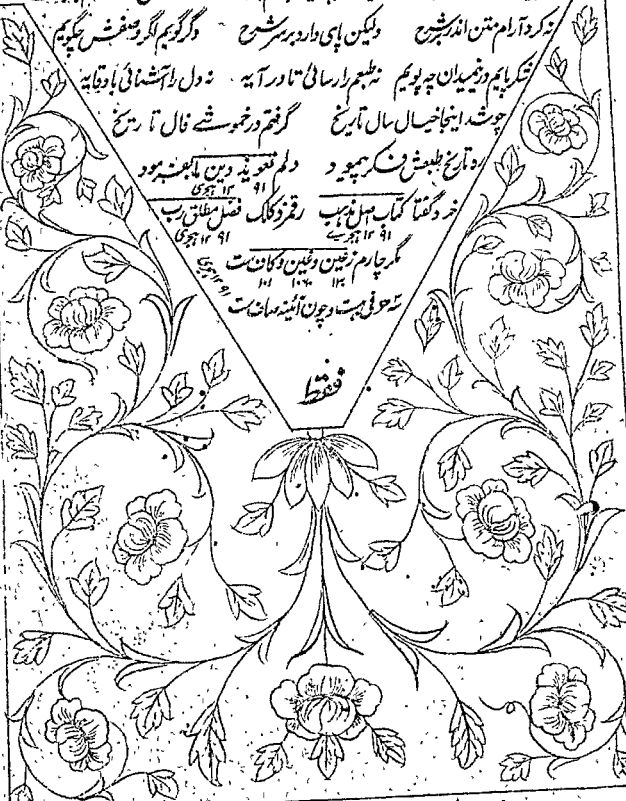 نه کرد آرام متن اندر بر شرح ولیکن پای دارد بر سر شرح وگر گویم اگر وصفش چگویم
تفکر پایم درمیدان چه پویم نه طبعم را رسائی تا در آیه نه دل را آشنائی با وقایه
چوشد اینجا خیال سال تاریخ گرفتم در خموشے فال تاریخ
ره تاریخ طبعش فکر پیمود دلم تعوید دین ما بفرمود
۱۲۹۱ هجری
خرد گفتا کتاب اصل مذهب رقمزد کلک فضل مطلق رب
۱۲۹۱ هجری ۱۲۹۱ هجری
مگر چارم ز عین و غین و کاف ست ۱۲۹۱ هجری
۱۳۰ ۱۰۶۰ ۱۰۱
سه حرفی هست و چون آئینه صاف ست
فقط